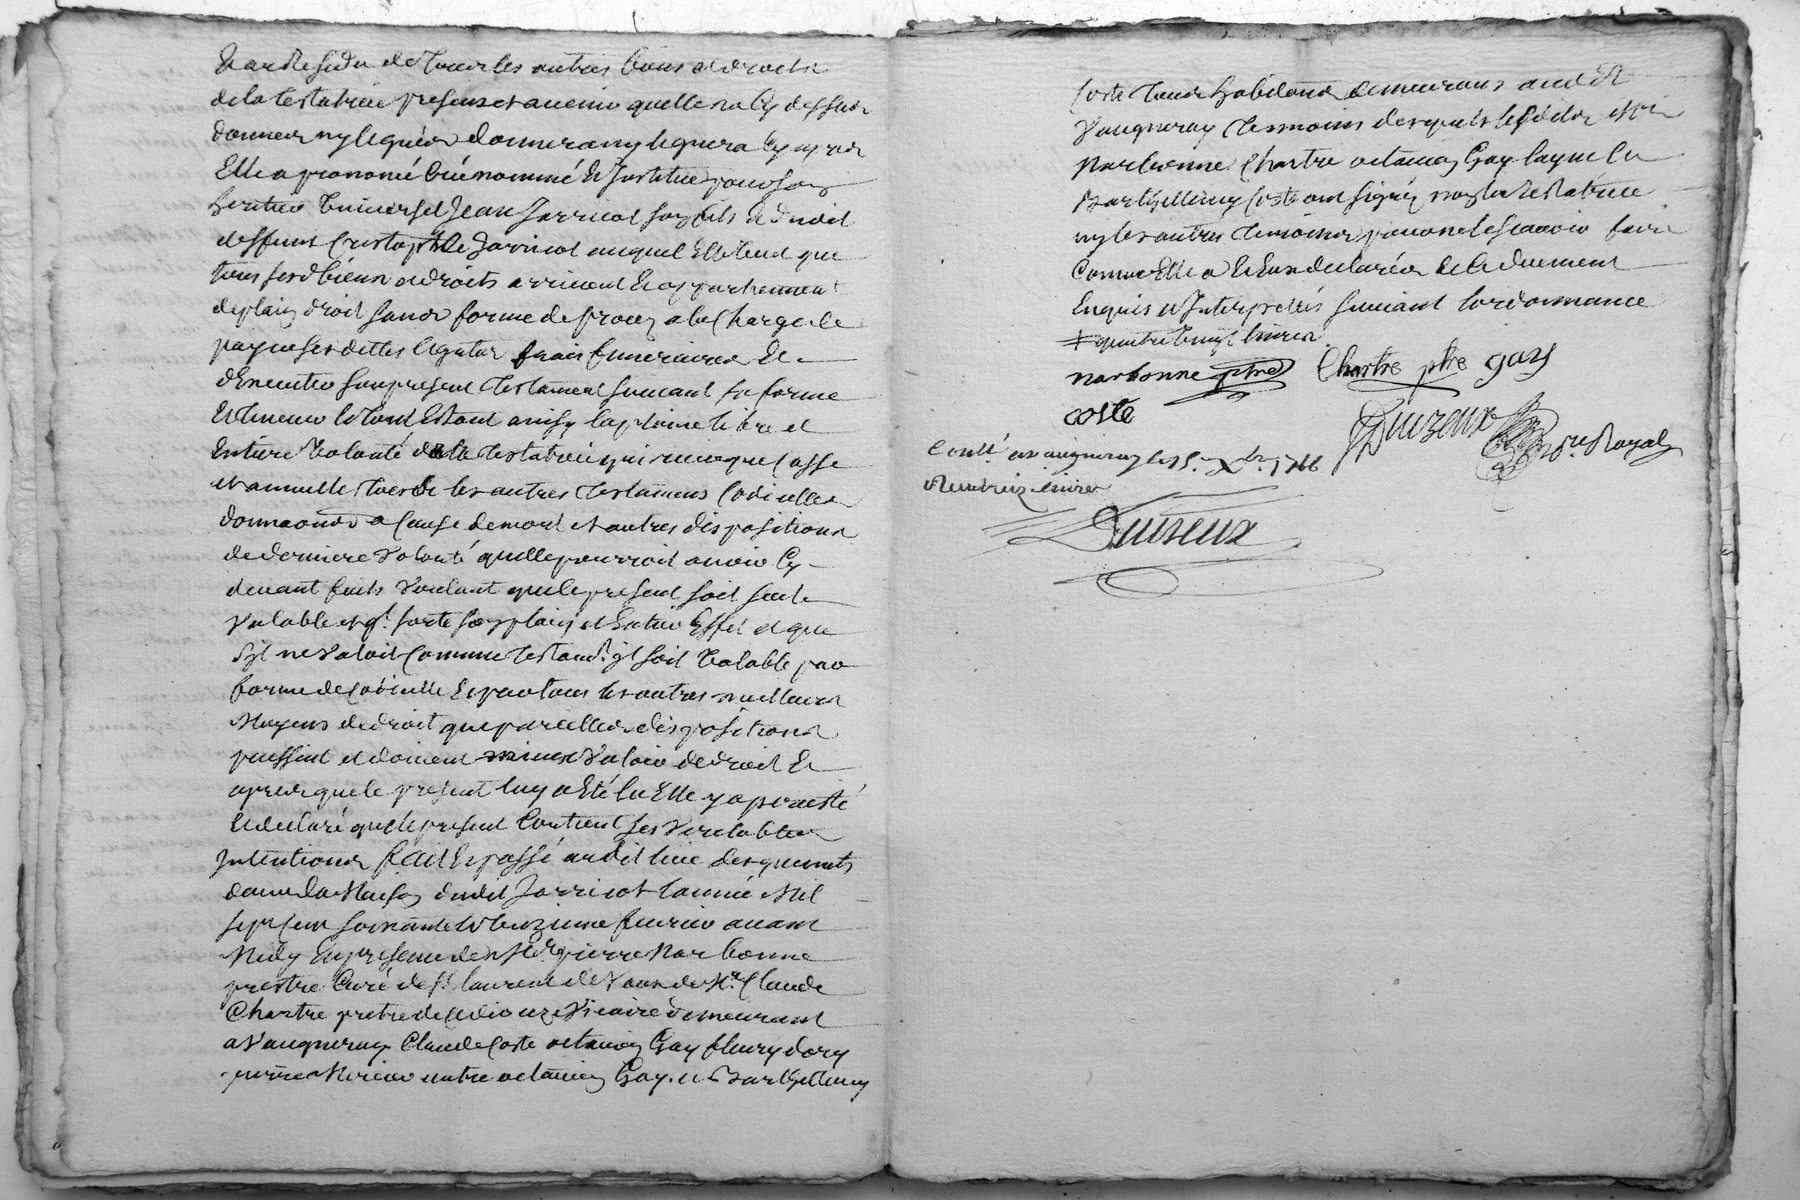 de la testatrice presens et avenir quelle na cy dessus
donnés ny legués donnera ny leguera cy apres
Elle a prononcé créé nommé et Institue pour son
heritier Universel Jean Jarricot son fils et dudit
deffunt Jarricot auquel Elle veut que
tous sesd. biens et droits arrivent et appartiennent
de plain droit sans forme de procez a la Charge de
payer ses dettes legats frais funeraires et
dexecuter son present testament suivant sa forme
et teneur le tout Estant ainsy la plaine libre et
Entiere Volonté de la testatrice qui revoque Casse
et annulle tous les autres testamens Codicilles
donnaons a Cause de mort et autres dispositions
de derniere Volonté quelle pourroit avoir Cy
devant faits Voulant que le present soit seul
Valable et qt. sorte son plain et Entier Effet et que
Sil ne Valoit Comme testamt. Jl soit Valable par
forme de Codicille et par tous les autres meilleurs
Moyens de droit que pareilles dispositions
puissent et doivent mieux Valoir de droit et
apres que le present luy a Eté lu Elle y a persisté
et declaré que le present Contient ses Veritables
Intentions fait et passé audit lieu des
dans la Maison dudit Jarricot l'année Mil
sept cent soixante le fevrier avant
Midy En presence de Mre pierre Narbonne
prestre Curé de St. laurent de Vaux de Mre Claude
Chartre pretre Vicaire demeurant
a Vaugneray Claude Coste Gay fleury dory
pierre autre Gay et Barthellemy
Coste tous habitans demeurans aud.
Vaugneray temoins desquels
Narbonne Chartre Gay layne
Barthellemy Coste ont signé non la testatrice
ny les autres temoins pour ne le scavoir faire
Comme Elle a et Eux declarés de ce duement
Enquis et Interpellés suivant lordonnance
narbonne ptre Chartre ptre gay
coste Duizeux Royal
Conllé. a vaugneray le 15. Xbre 1766
Duiseux